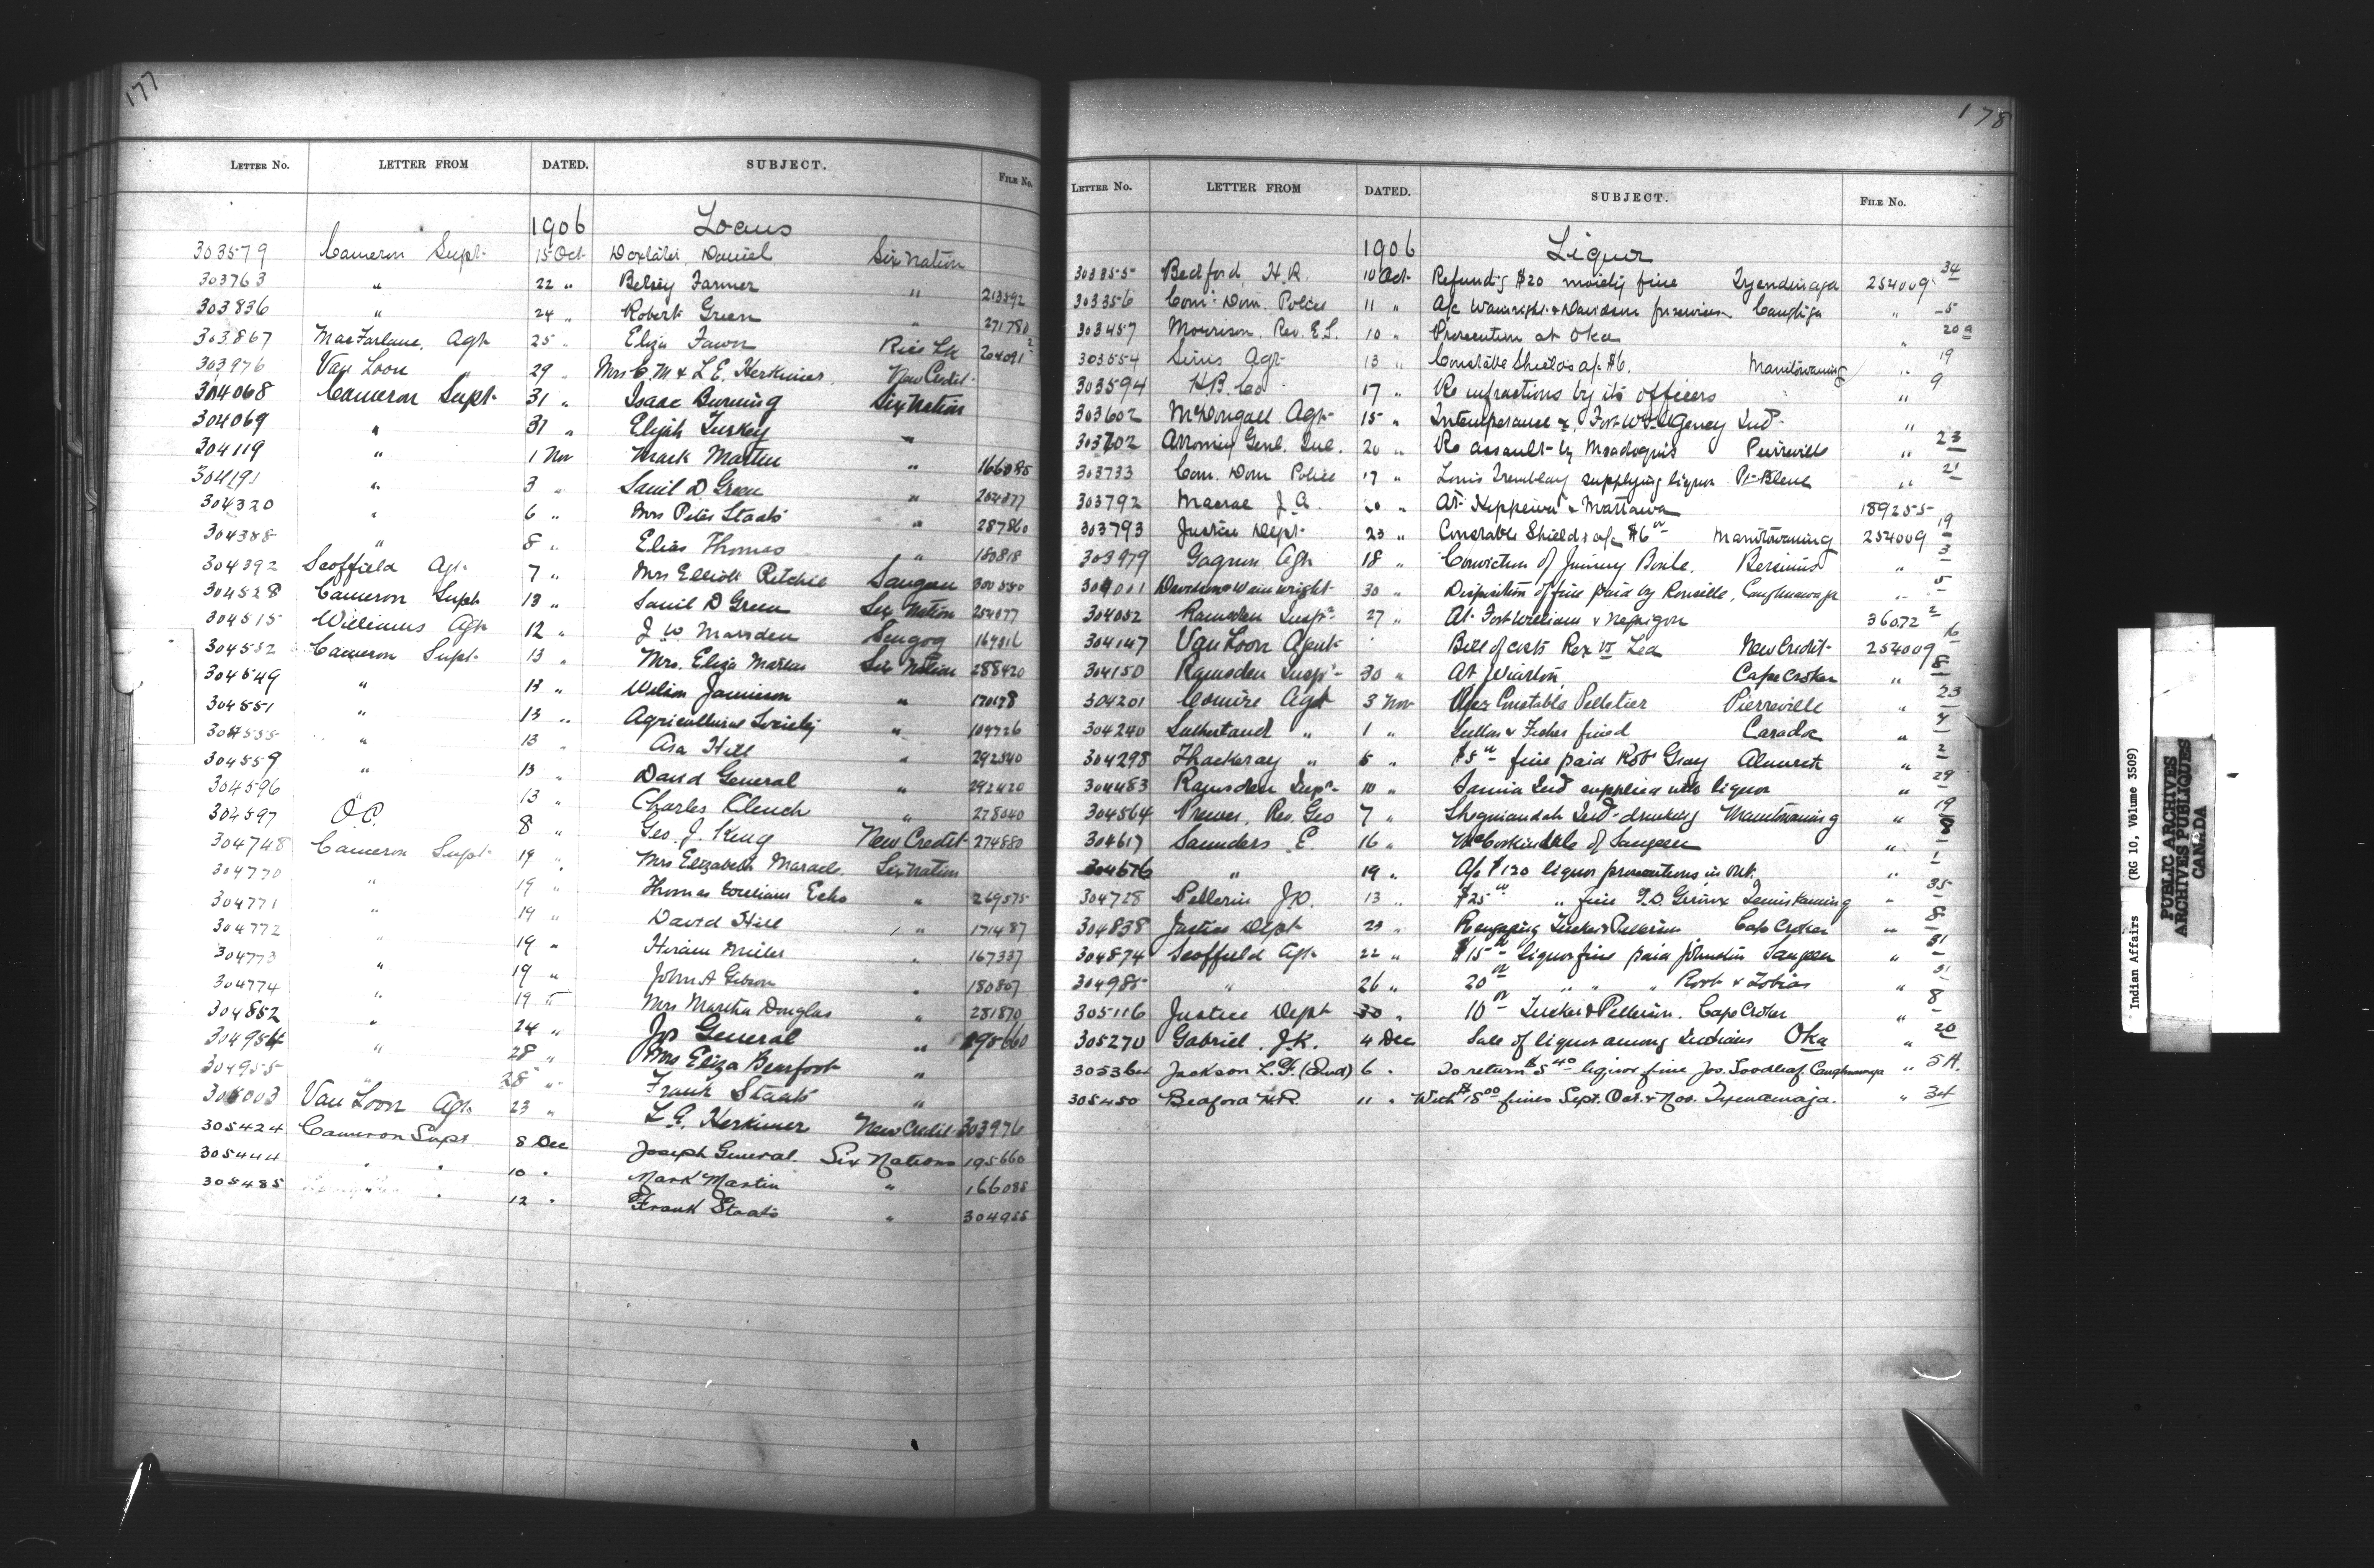 177
LETTER NO. LETTER FROM DATED. SUBJECT. FILE NO.
1906 Loans
303579 Cameron Supt. 15 Oct Doxtater, Daniel Six Nation
303763 " 22 " Betsey Farmer " 213592
303836 " 24 " Robert Green " 271780
303867 MacFarlane, Agt 25 " Eliza Fawn Rice Lk 204091 2
303976 Van Loon " 29 " Mrs C. M & L. E. Herkimer, New Credit
304068 Cameron Supt 31 " Isaac Burning Six Nation
304069 " 31 " Elijah Turkey "
304119 " 1 Nov Mark Martin " 166085
304191 " 3 " Saml D Green " 254077
304320 " 6 " Mrs Peter Staats " 287860
304388 " 8 " Elias Thomas " 180818
304392 Scoffield Agt 7 " Mrs Elliott Ritchie Saugeen 300550
304528 Cameron Supt 13 " Saml D Green Six Nation 254077
304515 Williams Agt 12 " J W Marsden Scugog 164316
304532 Cameron Supt 13 " Mrs. Eliza Six Nation 288420
304549 " 13 " Wilson Jamieson " 170178
304551 " 13 " Agricultural Society " 109726
304555 " 13 " Asa Hill " 292540
304559 " 13 " David General " 292420
304596 " 13 " Charles Clench " 278040
304597 O.C. 8 " Geo. J. King New Credit 274880
304748 Cameron Supt 19 " Mrs Elizabeth Maracle Six Nation
304770 " 19 " Thomas William Echo " 269575
304771 " 19 " David Hill " 171487
304772 " 19 " Hiram Miller " 167337
304773 " 19 " John A Gibson " 180807
304774 " 19 " Mrs Martha Douglas " 281870
304852 " 24 " Jos General " 195660
304954 " 28 " Mrs Eliza Bearfoot "
304955 " 28 " Frank Staats "
305003 Van Loon Agt 23 " L. E. Herkimer New Credit 303976
305424 Cameron Supt 8 Dec Joseph General. Six Nations 195660
305444 " " 10 " Mark Martin " 166088
305485 " 12 " Frank Staats " 304955
178
LETTER NO. LETTER FROM DATED. SUBJECT. FILE NO.
1906 Liquor
303355 Bedford, H. R. 10 Oct Refunding $20 moiety fine Tyendinaga 254009 34
303356 Com. Dom. Police 11 " A/c Wainright & Davidson for services Caughga " 5
303457 Morrison, Rev. E. S. 10 " Prosecution at Oka " 20a
303554 Sims Agt 13 " Constable Shields a/c $6. Manitowaning " 19
303594 H.B. Co 17 " Re infractions by its officers " 9
303602 McDougall Agt 15 " Intemperance Fort Wm Agency Ind "
303702 20 " Re assault by Msadoquis Pierreville " 23
303733 Com. Dom Police 17 " Louis Tremblay supplying liquor Pt Bleue " 21
303792 Macrae J. A. 20 " At Kippewa & Mattawa 189255
303793 Justice Dept 23 " Constable Shields a/c $6 00 Manitowaning 254009 19
303979 Gagnon Agt 18 " Conviction of Jimmy Bersimis " 3
304001 Davidson & Wainwright 30 " Disposition of fine paid by Caughnawaga " 5
304052 Ramsden Insp 27 " At Fort William & Nepigon 36072 2
304147 Van Loon Agent " Bill of costs Rex vs New Credit 254009 16
304150 Ramsden Insp 30 " At Wiarton, Cape Croker " 8
304201 Comire Agt 3 Nov Constable Pelletier Pierreville " 23
304240 Sutherland " 1 " & Fisher fined Caradoc " 4
304298 Thackeray " 5 " $5 00 fine paid Robt Gray Alnwick " 2
304483 Ramsden Insp 10 " Sarnia Ind supplied with liquor " 29
304564 Rev. Geo 7 " Sheguiandah Ind drinking Manitowaning " 19
304617 Saunders E. 16 " of Saugeen "
304676 " 19 " A/c $120 liquor prosecutions in Ont. " 1
304728 Pellerin J.O. 13 " $25 00 " fine Temiskaming " 35
304838 Justice Dept 23 " Re Tucker & Pellerin Cape Croker " 8
304874 Scoffield Agt 22 " $15 00 Liquor fine paid Johnston Saugeen " 31
304985 " 26 " 20 00 " " " Root & Tobias " 31
305116 Justice Dept 30 " 10 00 Tucker & Pellerin. Cape Croker " 8
305270 Gabriel. J.K. 4 Dec Sale of liquor among Indians Oka " 20
305364 Jackson L. F. (Ind) 6 " To return $5 40 liquor fine Jos. Goodleaf Caughnawaga " 5A.
305450 Bedford H.R. 11 " With $18 00 fines Sept. Oct. & Nov. Tyendinaga. " 34
Indian Affairs (RG 10, Volume 3509)
PUBLIC ARCHIVES
ARCHIVES PUBLIQUES
CANADA